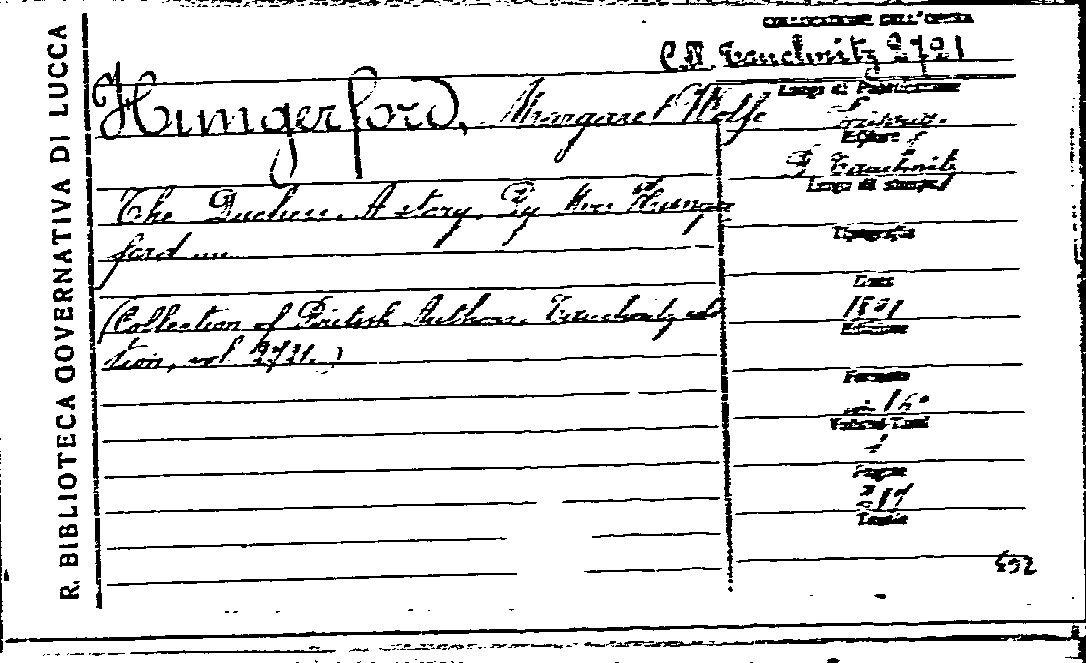 R. BIBLIOTECA GOVERNATIVA DI LUCCA
COLLOCAZIONE DELL'OPERA
C.N. Tauchnitz 2721
Hungerford, Margaret Wolfe
The Duchess. A story. By Mrs Hunger
ford ...
(Collection of British Authors. Tauchnitz edi
tion, vol. 2721.)
Luogo di Pubblicazione
Editore
B. Tauchnitz
Luogo di stampa
Tipografia
Data
1891
Edizione
Formato
in 16°
Volumi-Tomi
1
Pagine
Tavole